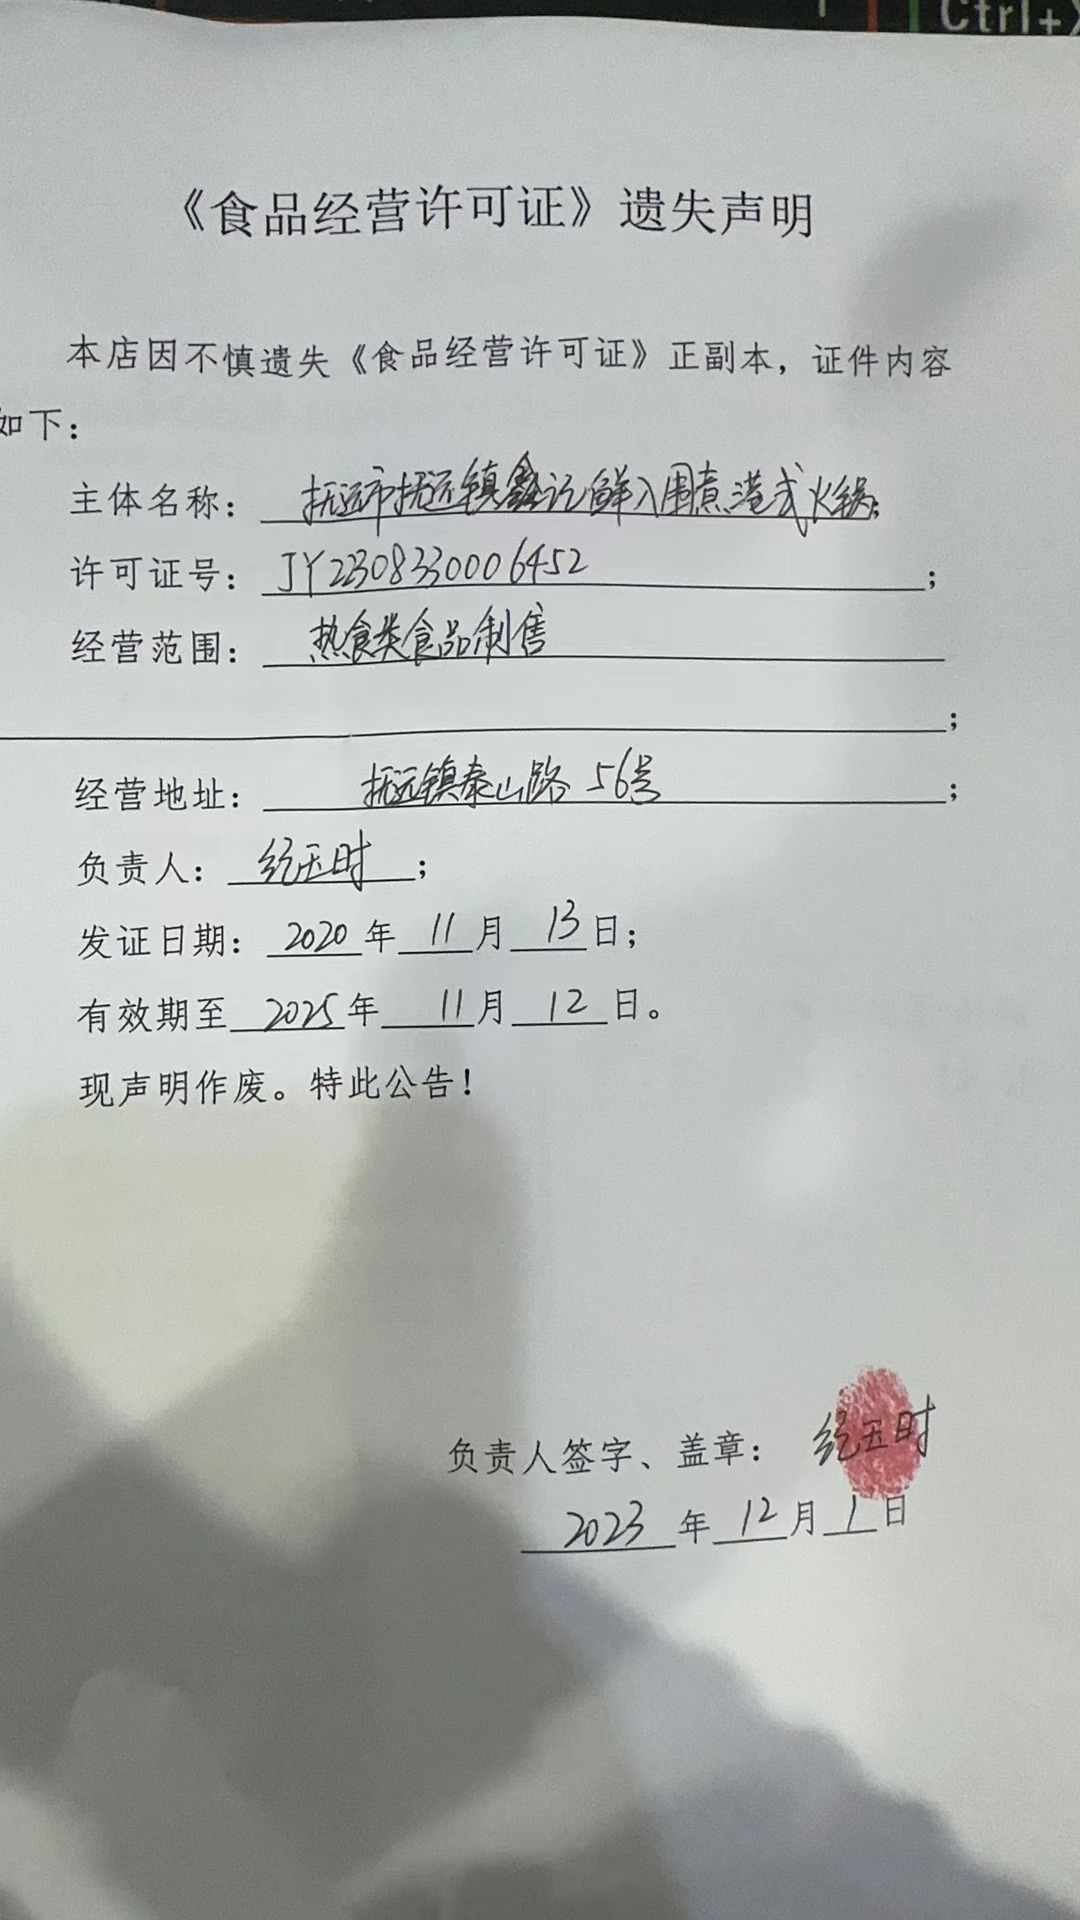 Ctrl+X
《食品经营许可证》遗失声明
本店因不慎遗失《食品经营许可证》正副本，证件内容
如下：
主体名称：抚远市抚远镇鑫记鲜入围煮港式火锅；
许可证号：JY22308330006452；
经营范围：热食类食品制售
；
经营地址：抚远镇泰山路 56号；
负责人：纪玉时；
发证日期：2020年11月13日；
有效期至2025年11月12日。
现声明作废。特此公告！
负责人签字、盖章：纪玉时
2023年12月1日